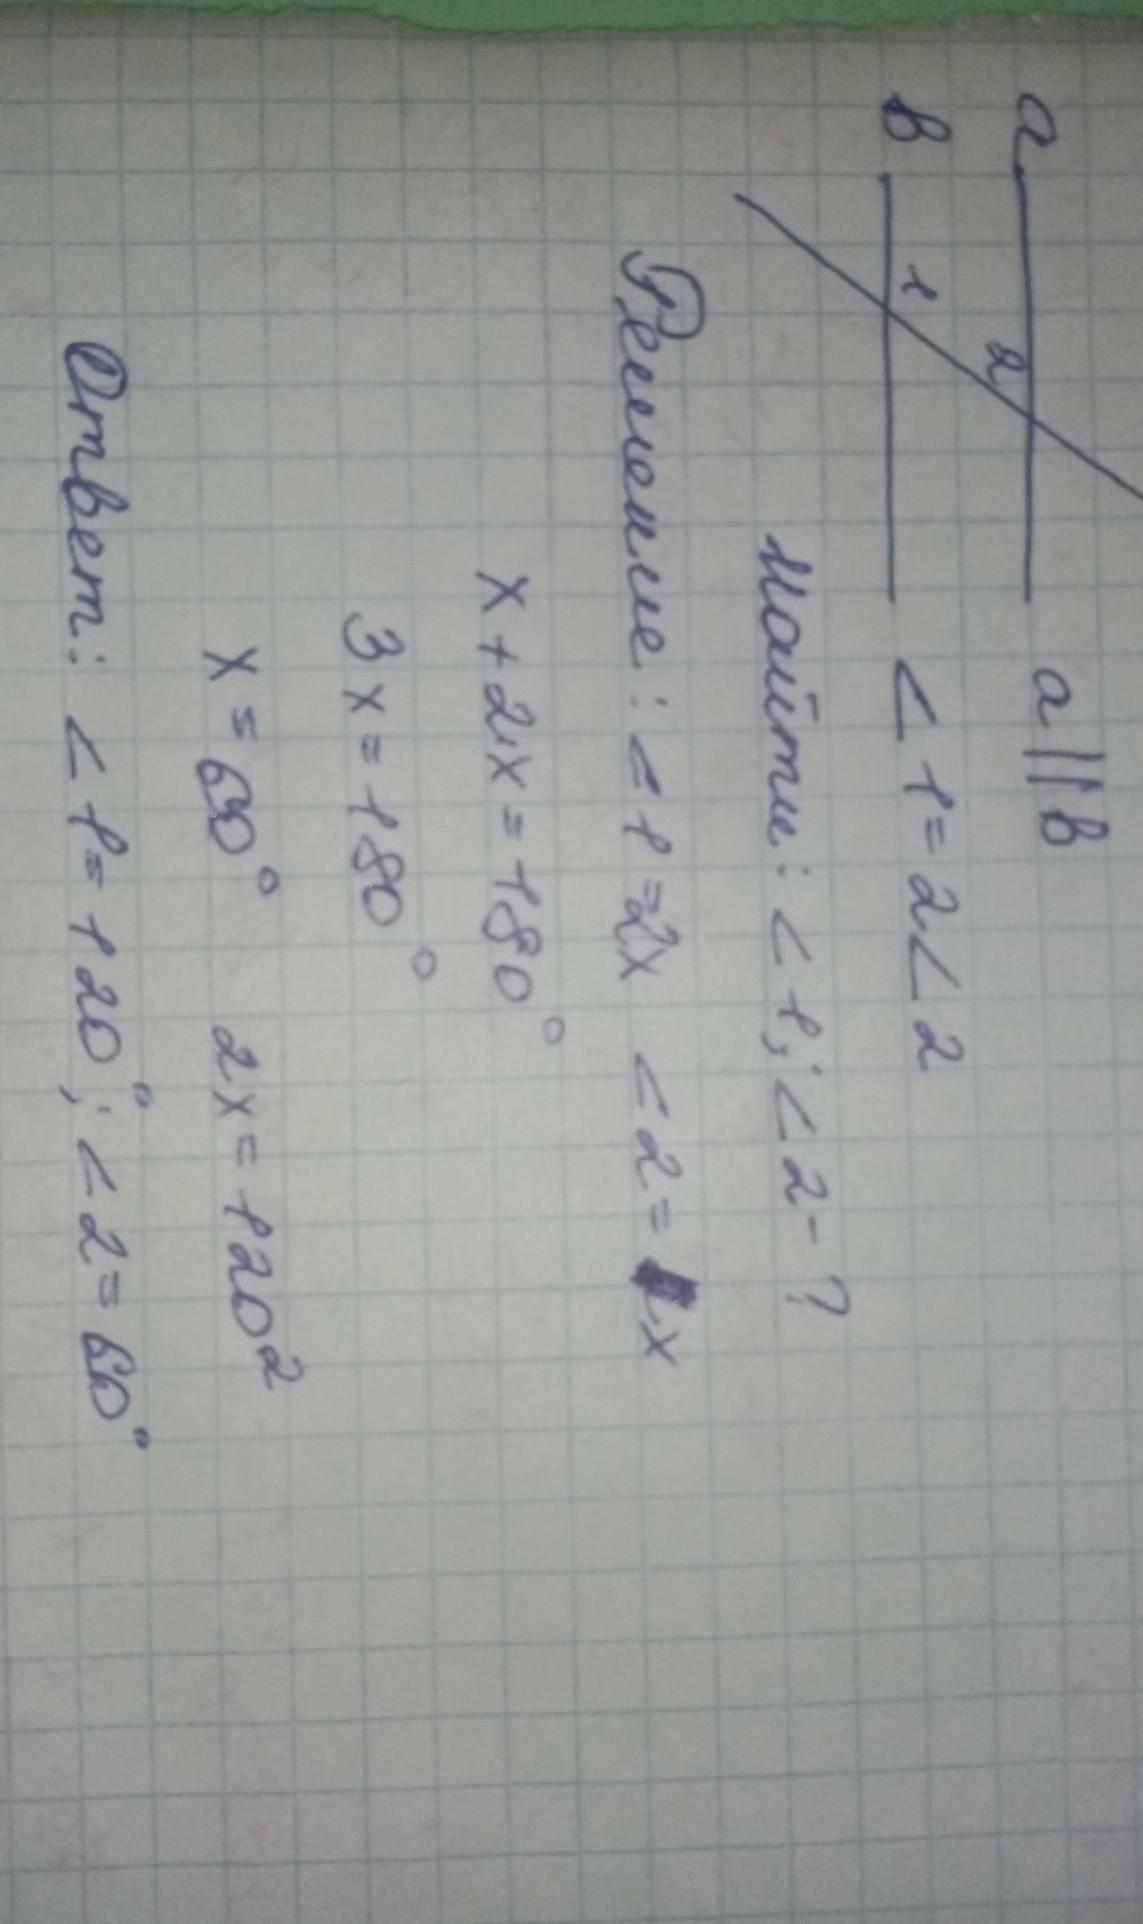 a a || b
b 1 2 < 1 = 2 < 2
Найти: < 1; < 2 - ?
Решение: < 1 = 2x < 2 = x
x + 2x = 180°
3x = 180°
x = 60° 2x = 120²
Ответ: < 1 = 120°; < 2 = 60°